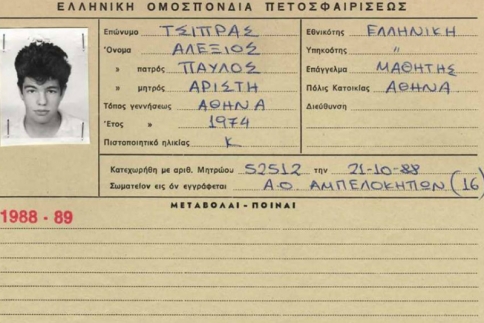 ΕΛΛΗΝΙΚΗ ΟΜΟΣΠΟΝΔΙΑ ΠΕΤΟΣΦΑΙΡΙΣΕΩΣ
Επώνυμο ΤΣΙΠΡΑΣ
Όνομα ΑΛΕΞΙΟΣ
» πατρός ΠΑΥΛΟΣ
» μητρός ΑΡΙΣΤΗ
Τόπος γεννήσεως ΑΘΗΝΑ
Έτος » 1974
Πιστοποιητικό ηλικίας Κ
Εθνικότης ΕΛΛΗΝΙΚΗ
Υπηκοότης "
Επάγγελμα ΜΑΘΗΤΗΣ
Πόλις Κατοικίας ΑΘΗΝΑ
Διεύθυνση
Κατεχωρήθη με αριθ. Μητρώου 52512 την 21-10-88
Σωματείον εις όν εγγράφεται Α.Ο. ΑΜΠΕΛΟΚΗΠΩΝ (16)
ΜΕΤΑΒΟΛΑΙ - ΠΟΙΝΑΙ
1988 - 89